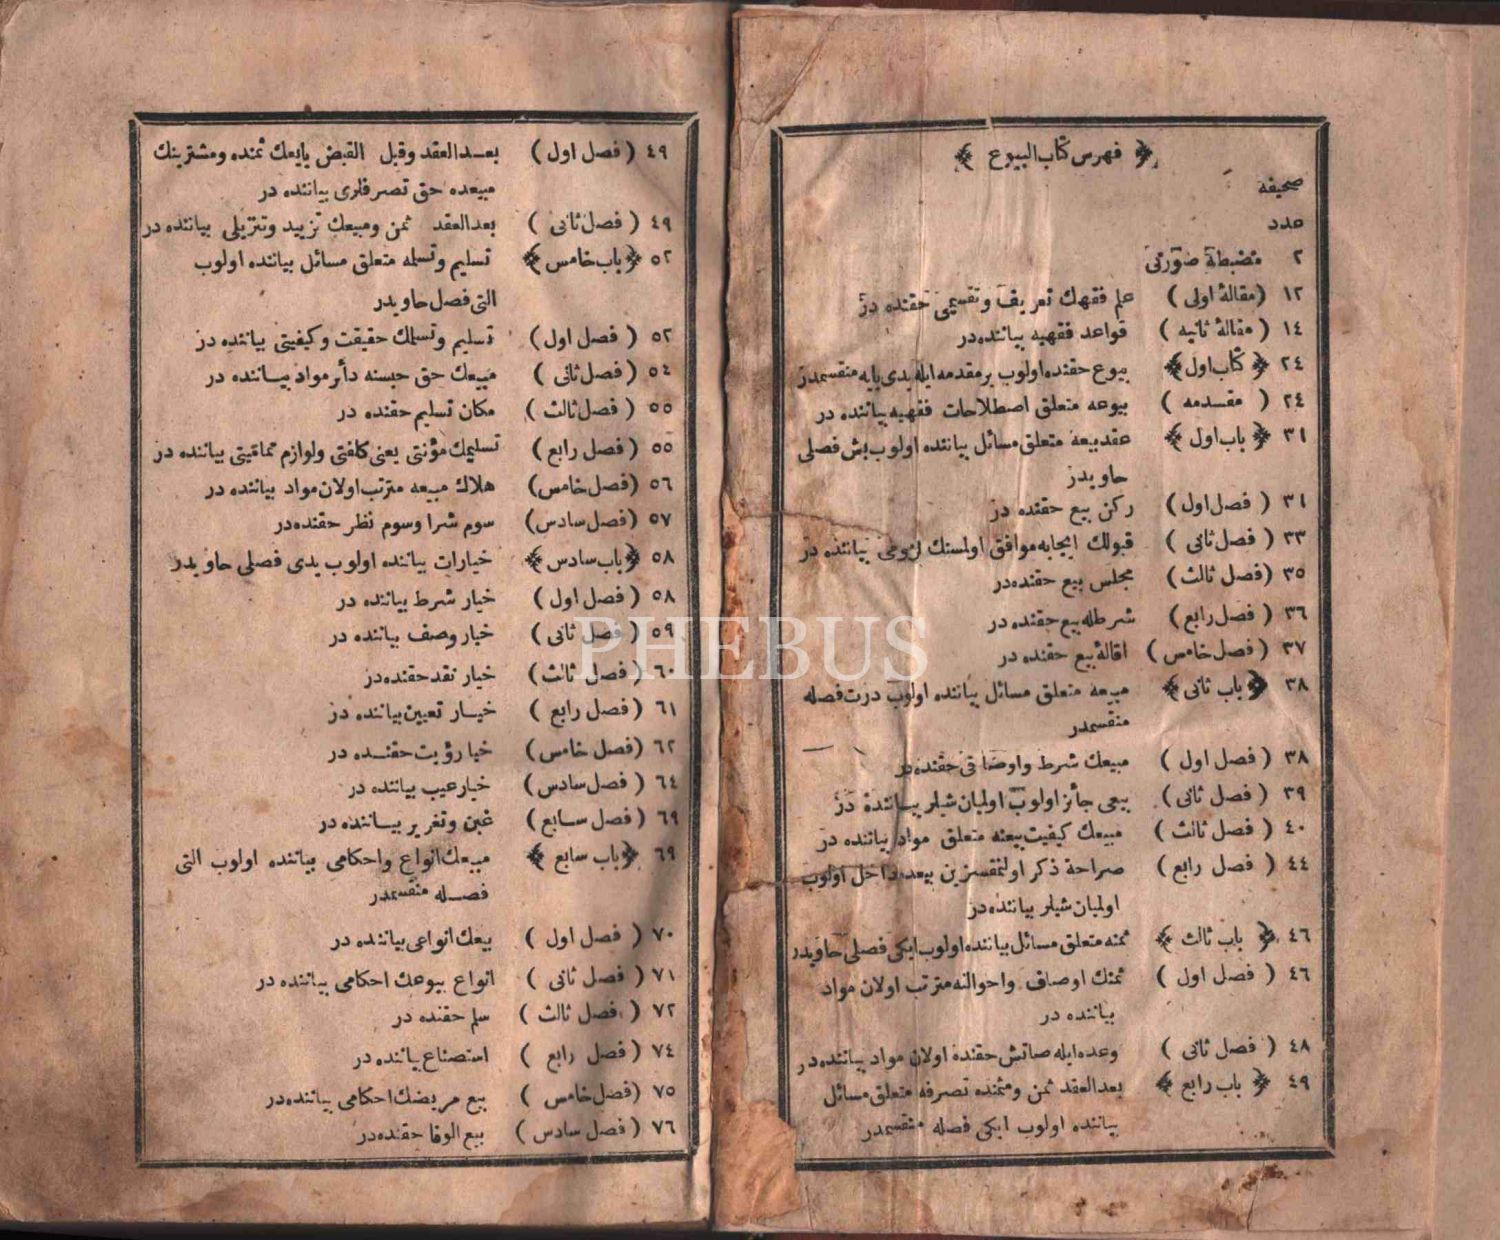 ﴿ فهرس كتاب البيوع ﴾
صحيفه
عدد
٢ مضبطة صورتى
١٢ (مقالهٔ اولى) علم فقهك تعريف وتقسيمى حقنده در
١٤ (مقالهٔ ثانيه) قواعد فقهيه بياننده در
٢٤ ﴿كتاب اول﴾ بيوع حقنده اولوب بر مقدمه ايله يدى بابه منقسمدر
٢٤ (مقدمه) بيوعه متعلق اصطلاحات فقهيه بياننده در
٣١ ﴿باب اول﴾ عقد بيعه متعلق مسائل بياننده اولوب بش فصلى
حاويدر
٣١ (فصل اول) ركن بيع حقنده در
٣٣ (فصل ثانى) قبولك ايجابه موافق اولمسنك لزومى بياننده در
٣٥ (فصل ثالث) مجلس بيع حقنده در
٣٦ (فصل رابع) شرطله بيع حقنده در
٣٧ (فصل خامس) اقالهٔ بيع حقنده در
٣٨ ﴿باب ثانى﴾ مبيعه متعلق مسائل بياننده اولوب درت فصله
منقسمدر
٣٨ (فصل اول) مبيعك شرط واوصافى حقنده در
٣٩ (فصل ثانى) بيعى جائز اولوب اولميان شيلر بياننده در
٤٠ (فصل ثالث) مبيعك كيفيت بيعنه متعلق مواد بياننده در
٤٤ (فصل رابع) صراحة ذكر اولنمقسزين بيعده داخل اولوب
اولميان شيلر بياننده در
٤٦ ﴿باب ثالث﴾ ثمنه متعلق مسائل بياننده اولوب ايكى فصلى حاويدر
٤٦ (فصل اول) ثمنك اوصاف واحوالنه مترتب اولان مواد
بياننده در
٤٨ (فصل ثانى) وعده ايله صاتش حقنده اولان مواد بياننده در
٤٩ ﴿باب رابع﴾ بعد العقد ثمن ومثمنده تصرفه متعلق مسائل
بياننده اولوب ايكى فصله منقسمدر
٤٩ (فصل اول) بعد العقد وقبل القبض بايعك ثمنده ومشترينك
مبيعده حق تصرفلرى بياننده در
٤٩ (فصل ثانى) بعد العقد ثمن ومبيعك تزييد وتنزيلى بياننده در
٥٢ ﴿باب خامس﴾ تسليم وتسلمه متعلق مسائل بياننده اولوب
التى فصل حاويدر
٥٢ (فصل اول) تسليم وتسلمك حقيقت وكيفيتى بياننده در
٥٤ (فصل ثانى) مبيعك حق حبسنه دائر مواد بياننده در
٥٥ (فصل ثالث) مكان تسليم حقنده در
٥٥ (فصل رابع) تسليمك مؤنتى يعنى كلفتى ولوازم تماميتى بياننده در
٥٦ (فصل خامس) هلاك مبيعه مترتب اولان مواد بياننده در
٥٧ (فصل سادس) سوم شرا وسوم نظر حقنده در
٥٨ ﴿باب سادس﴾ خيارات بياننده اولوب يدى فصلى حاويدر
٥٨ (فصل اول) خيار شرط بياننده در
٥٩ (فصل ثانى) خيار وصف بياننده در
٦٠ (فصل ثالث) خيار نقد حقنده در
٦١ (فصل رابع) خيار تعيين بياننده در
٦٢ (فصل خامس) خيار رؤيت حقنده در
٦٤ (فصل سادس) خيار عيب بياننده در
٦٩ (فصل سابع) غبن وتغرير بياننده در
٦٩ ﴿باب سابع﴾ مبيعك انواع واحكامى بياننده اولوب التى
فصله منقسمدر
٧٠ (فصل اول) بيعك انواعى بياننده در
٧١ (فصل ثانى) انواع بيوعك احكامى بياننده در
٧٢ (فصل ثالث) سلم حقنده در
٧٤ (فصل رابع) استصناع بياننده در
٧٥ (فصل خامس) بيع مريضك احكامى بياننده در
٧٦ (فصل سادس) بيع الوفا حقنده در
PHEBUS